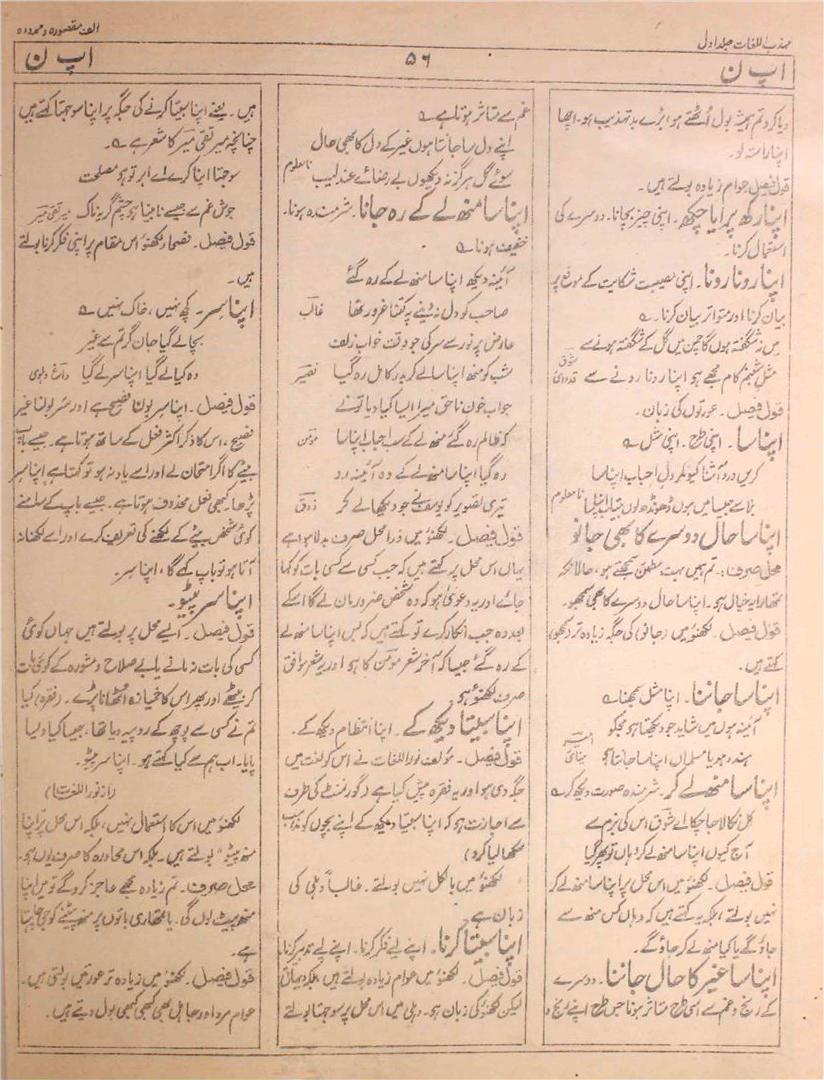 مہذب اللغات جلد اول
الف مقصورہ و ممدودہ
اپ ن
۵۶
اپ ن
دیا کرو تم ہمیشہ بول اُٹھتے ہو، بڑے بد تہذیب ہو۔ اچھا
اپنا راستہ لو۔
قول فیصل عوام زیادہ بولتے ہیں۔
اپنا رکھ پرایا چکھ۔ اپنی چیز بچانا۔ دوسرے کی
استعمال کرنا۔
اپنا رونا رونا۔ اپنی مصیبت شکایت کے موقع پر
بیان کرنا اور متواتر بیان کرنا۔ ؎
میں نہ شگفتہ ہوں گا چمن میں گل کے شگفتہ ہونے سے
مثل شبنم کام مجھے ہو اپنا رونا رونے سے شوق قدوائی
قول فیصل۔ عورتوں کی زبان۔
اپنا سا۔ اپنی طرح۔ اپنی مثل ؎
کریں درد آشنا کیونکر دل احباب اپنا سا
بڑا ہے جیسا میں ہوں ڈھونڈھ لوں بیتاب اپنا سا نامعلوم
اپنا سا حال دوسرے کا بھی جانو
محل صرف:۔ تم ہمیں بہت مطمئن سمجھتے ہو، حالانکہ
تمھارا یہ خیال ہو۔ اپنا سا حال دوسرے کا بھی سمجھو۔
قول فیصل۔ لکھنؤ میں (جانو) کی جگہ زیادہ تر (سمجھو)
کہتے ہیں۔
اپنا سا جاننا۔ اپنا مثل سمجھنا ؎
آئینہ ہوں میں شاید جو دیکھتا ہو مجکو
ہندو ہو یا مسلماں اپنا سا جانتا ہو امیر مینائی
اپنا سا منھ لے کر۔ شرمندہ صورت دیکھ کر ؎
کل نکالا جا چکا اے شوق اس کی بزم سے
آج کیوں اپنا سا منھ لے کر وہاں تو پھر گیا
قول فیصل۔ لکھنؤ میں اس محل پر اپنا سا منھ لے کر
نہیں بولتے، بلکہ یہ کہتے ہیں کہ وہاں کس منھ سے
جاؤ گے یا کیا منھ لے کر جاؤ گے۔
اپنا سا غیر کا حال جاننا۔ دوسرے
کے رنج و غم سے اسی طرح متاثر ہونا جس طرح اپنے رنج و
غم سے متاثر ہوتا ہے ؎
اپنے دل سا جانتا ہوں غیر کے دل کا بھی حال
سوئے گل ہرگز نہ دیکھوں بے رضائے عندلیب نامعلوم
اپنا سا منھ لے کے رہ جانا۔ شرمندہ ہونا۔
خفیف ہونا ؎
آئینہ دیکھ اپنا سا منھ لے کے رہ گئے
صاحب کو دل نہ دینے پہ کتنا غرور تھا غالب
عارض پر نور سے سرکی جو وقت خواب زلف
شب کو منھ اپنا سا لے کر بدر کامل رہ گیا نصیر
جواب خون ناحق میرا ایسا کیا دیا تو نے
کہ ظالم رہ گئے منھ لے کے سب احباب اپنا سا مومن
رہ گیا اپنا سا منھ لے کے وہ آئینہ رو
تیری تصویر کو یوسف نے جو دیکھا لے کر ذوق
قول فیصل۔ لکھنؤ میں ذرا محل صرف بدلا ہوا ہے
یہاں اس محل پر کہتے ہیں کہ جب کسی سے کسی بات کو کہا
جائے اور یہ دعویٰ ہو کہ وہ شخص ضرور مان لے گا اسکے
بعد وہ جب انکار کرے تو کہتے ہیں کہ بس اپنا سا منھ لے
کے رہ گئے جیسا کہ آخر شعر مومن کا ہو اور یہ شعر موافق
صرف لکھنؤ ہو
اپنا سبیتا دیکھ کے۔ اپنا انتظام دیکھ کے۔
قول فیصل۔ مولف نور اللغات نے اس کو لغت میں
جگہ دی ہو اور یہ فقرہ پیش کیا ہے (گورنمنٹ کی طرف
سے اجازت ہو کہ اپنا سبیتا دیکھ کے اپنے بچوں کو مذہب
سکھا لیا کرو)
لکھنؤ میں بالکل نہیں بولتے۔ غالباً دہلی کی
زبان ہے۔
اپنا سبیتا کرنا۔ اپنے لیے فکر کرنا۔ اپنے لیے تدبیر کرنا۔
قول فیصل۔ لکھنؤ میں عوام زیادہ بولتے ہیں، بلکہ دیہاتی
لیکن لکھنؤ کی زبان ہو۔ دہلی میں اس محل پر سوجھتا بولتے
ہیں۔ یعنے اپنا سبیتا کرنے کی جگہ پر اپنا سوجھتا کہتے ہیں
چنانچہ میر تقی میر کا شعر ہے ؎
سوجھتا اپنا کرے اے ابر تو ہو مصلحت
جوش غم سے جیسے نابینا ہو چشم گریہ ناک میر تقی میر
قول فیصل۔ فصحاء لکھنؤ اس مقام پر اپنی فکر کرنا بولتے
ہیں۔
اپنا سر۔ کچھ نہیں، خاک نہیں ؎
بچا لے گیا جان گر تم سے غیر
وہ کیا لے گیا اپنا سر لے گیا داغ دہلوی
قول فیصل۔ اپنا سر بولنا فصیح ہے اور سُر بولنا غیر
فصیح، اس کا ذکر اکثر فعل کے ساتھ ہوتا ہے۔ جیسے باپ
بیٹے کا اگر امتحان لے اور اسے یاد نہ ہو تو کہتا ہے اپنا سر
پڑھا، کبھی فعل محذوف ہوتا ہے۔ جیسے باپ کے سامنے
کوئی شخص بیٹے کے لکھنے کی تعریف کرے اور اسے لکھنا نہ
آتا ہو تو باپ کہے گا، اپنا سر۔
اپنا سر پیٹو۔
قول فیصل۔ ایسے محل پر بولتے ہیں جہاں کوئی
کسی کی بات نہ مانے یا بے صلاح و مشورہ کے کوئی بات
کر بیٹھے اور پھر اس کا خمیازہ اُٹھانا پڑے۔ (فقرہ) کیا
تم نے کسی سے پوچھ کے روپیہ دیا تھا، جیسا کیا ویسا
پایا۔ اب ہم سے کیا کہتے ہو۔ اپنا سر پیٹو۔
(از نور اللغات)
لکھنؤ میں اس کا استعمال نہیں، بلکہ اس محل پر اپنا
منھ پیٹو" بولتے ہیں۔ بلکہ اس محاورہ کا صرف یوں ہو۔
محل صرف:۔ تم زیادہ مجھے عاجز کرو گے تو میں اپنا
منھ پیٹ لوں گی۔ یا تمھاری باتوں پر منھ پیٹنے کو جی چاہتا
ہے۔
قول فیصل۔ لکھنؤ میں زیادہ تر عورتیں بولتی ہیں۔
عوام مرد اور جاہل بھی کبھی کبھی بول دیتے ہیں۔